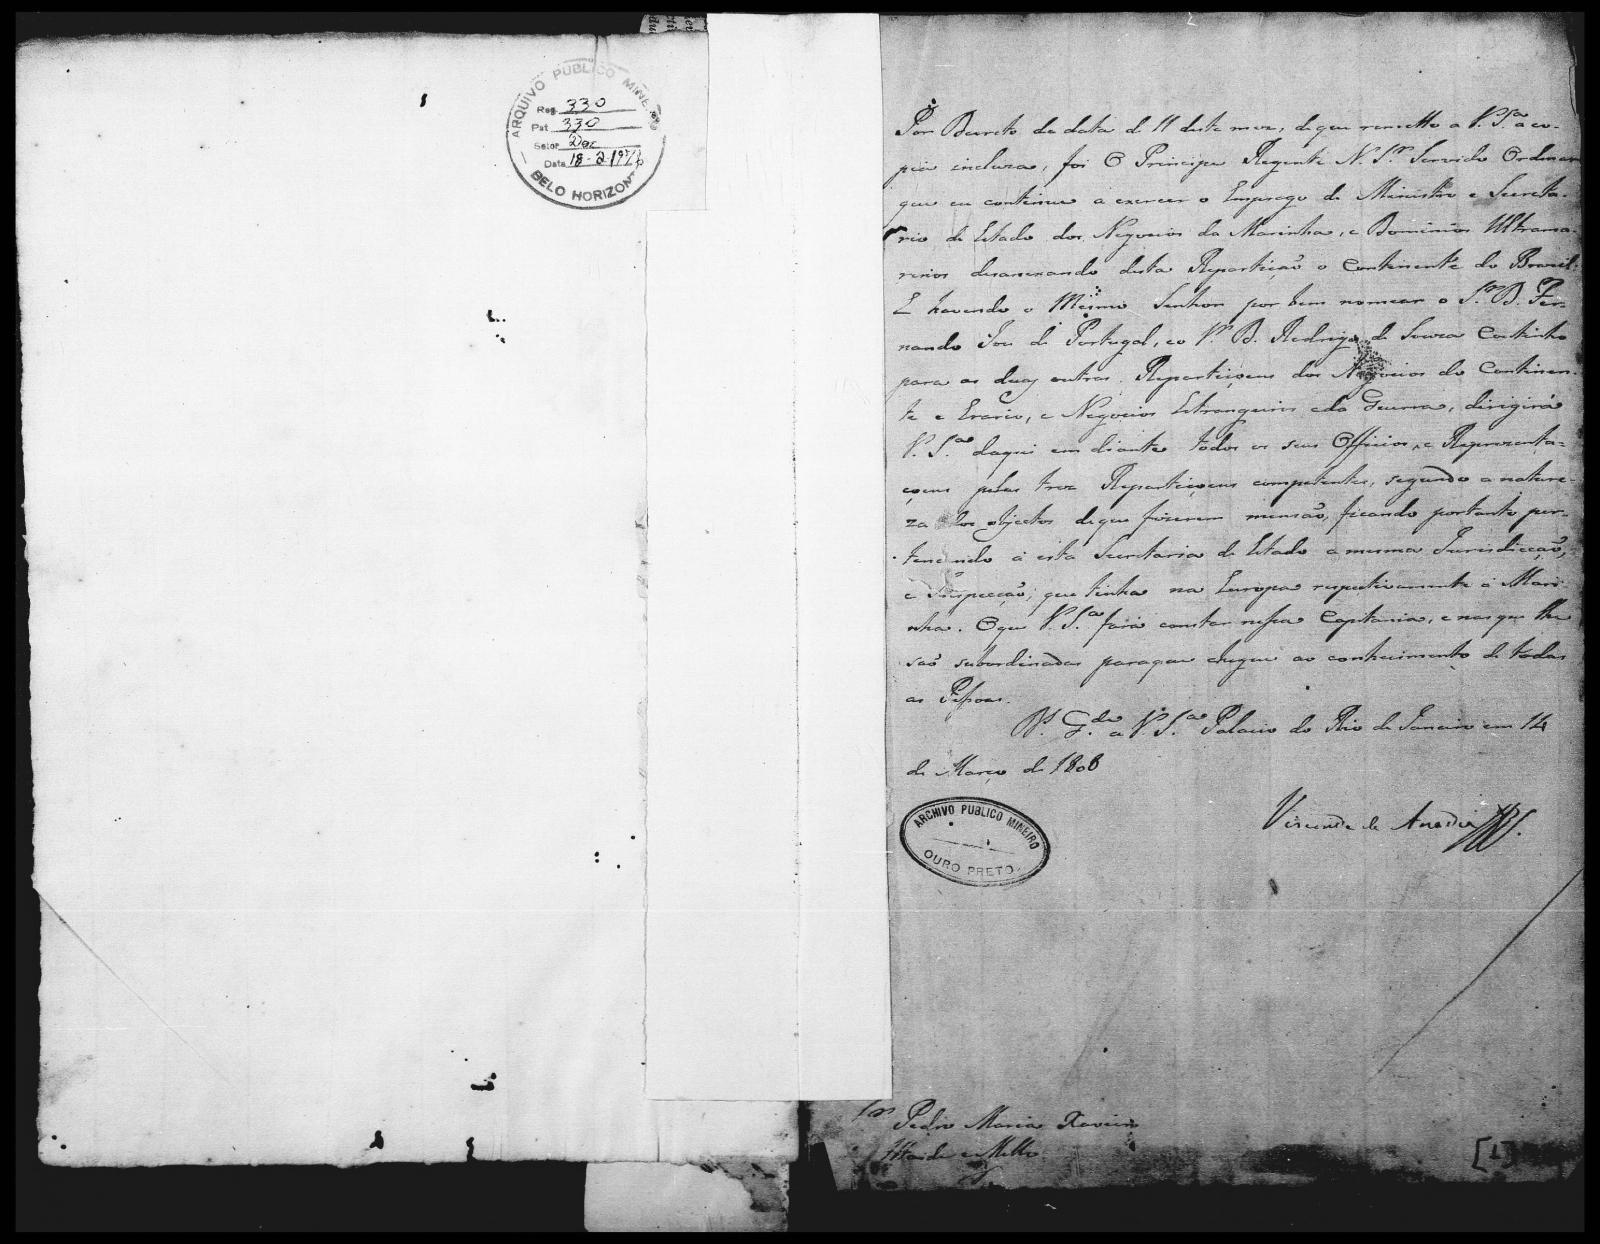 ARQUIVO PUBLICO MINEIRO
Reg. 330
Pat 330
Setor Doc
Data 18-2-197
BELO HORIZONT
Por Decreto da data de 11 deste mez, de que remetto a V. S.ª a co-
pia incluza, foi O Principe Regente N. S.r Servido Ordenar
que eu continue a exercer o Emprego de Ministro e Secreta-
rio de Estado dos Negocios da Marinha, e Dominios Ultrama-
rinos desanexando desta Repartiçaõ o Continente do Brazil.
E havendo o Mesmo Senhor por bem nomear o S.r D. Fer-
nando Joze de Portugal, eo S.r D. Rodrigo de Souza Coutinho
para as duas outras Repartiçoens dos Negocios do Continen-
te e Erario, e Negocios Estrangeiros e da Guerra, dirigirá
V. S.ª daqui em diante todos os seus Officios, e Reprezenta-
çoens pelas trez Repartiçoens competentes, segundo a nature-
za dos objectos de que fizerem mensaõ, ficando portanto per-
tencendo á esta Secretaria de Estado a mesma Jurisdicçaõ,
e Inspecçaõ, que tinha na Europa respectivamente á Mari-
nha. O que V. S.ª fará constar nessa Capitania, e nas que lhe
saõ subordinadas para que chegue ao conhecimento de todas
as Pessoas.
D.s G.de a V. S.ª Palacio do Rio de Janeiro em 14
de Março de 1808
Visconde de Anadia
ARCHIVO PUBLICO MINEIRO
OURO PRETO
S.r Pedro Maria Xavier
Attaide e Mello
[1]